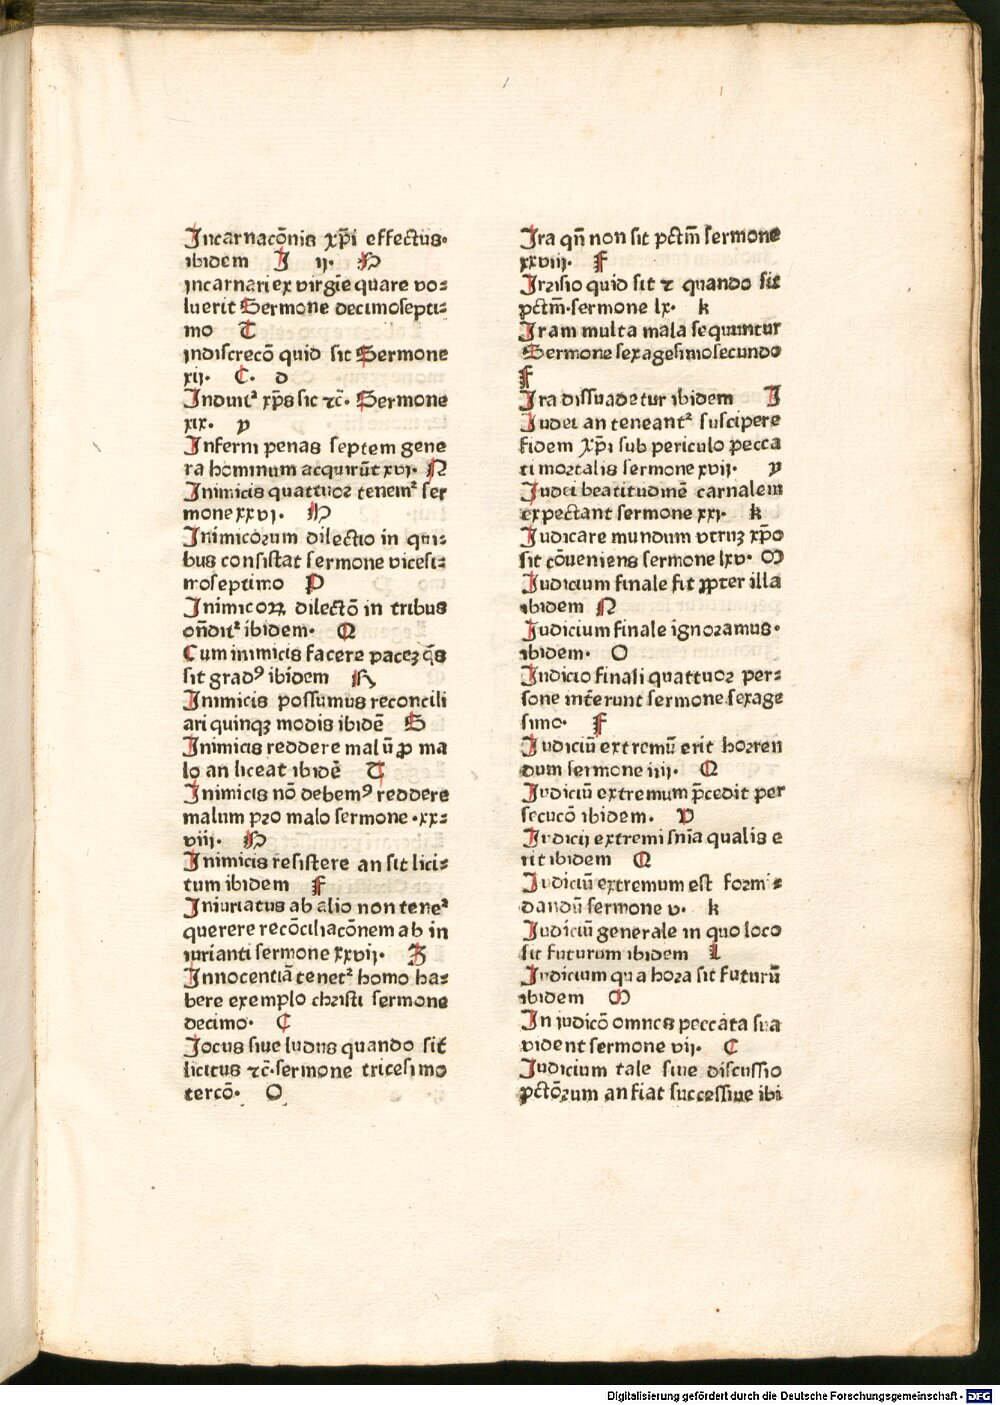 Incarnacōnis xp̄i effectus·
ibidem J ij· H
incarnari ex virgīe quare vo⸗
luerit Sermone decimosepti⸗
mo T
indiscrecō quid sit Sermone
xij· C· d
Induit² xp̄s sic ⁊c̄· Sermone
xix· p
Inferni penas septem gene
ra hominum acquirūt xvi· N
Inimicis quattuor tenem² ser
mone xxvi· H
Inimicorum dilectio in qui⸗
bus consistat sermone vicesi⸗
moseptimo P
Inimicoꝝ dilectō in tribus
on̄dit² ibidem· Q
Cum inimicis facere pacez q̄s
sit gradꝰ ibidem R
Inimicis possumus reconcili
ari quinqꝫ modis ibidē S
Inimicis reddere malū ꝓ ma
lo an liceat ibidē T
Inimicis nō debemꝰ reddere
malum pro malo sermone ·xx⸗
viii· H
Inimicis resistere an sit lici⸗
tum ibidem F
Iniuriatus ab alio non tene²
querere recōciliacōnem ab in
iurianti sermone xxvij· Z
Innocentiā tenet² homo ha⸗
bere exemplo christi sermone
decimo· C
Jocus siue ludus quando sit
licitus ⁊c̄·sermone tricesimo
tercō· O
Ira qn̄ non sit pctm̄ sermone
xxviij· F
Irrisio quid sit ⁊ quando sit
pctm̄·sermone lx· k
Iram multa mala sequuntur
Sermone sexagesimosecundo
F
Ira dissuadetur ibidem J
Iudei an teneant² suscipere
fidem xp̄i sub periculo pecca
ti mortalis sermone xvij· p
Iudei beatitudinē carnalem
expectant sermone xxj· k
Iudicare mundum vtruꝫ xp̄o
sit cōueniens sermone lxv· M
Iudicium finale fit ꝓpter illa
ibidem N
Iudicium finale ignoramus·
ibidem· O
Iudicio finali quattuor per⸗
sone int̄erunt sermone sexage
simo· F
Iudiciū extremū erit horren
dum sermone iiij· Q
Iudiciū extremum p̄cedit per
secucō ibidem· p
Iudicij extremi sn̄ia qualis e
rit ibidem Q
Iudiciū extremum est formi⸗
dandū sermone v· k
Iudiciū generale in quo loco
sit futurum ibidem L
Iudicium qua hora sit futurū
ibidem M
In iudicō omnes peccata sua
vident sermone vij· C
Iudicium tale siue discussio
pctōrum an fiat successiue ibi
Digitalisierung gefördert durch die Deutsche Forschungsgemeinschaft - DFG